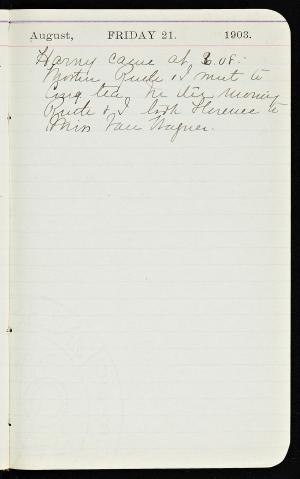 August, FRIDAY 21. 1903.
Harry came at 3.08.
I went to
tea, In the Morning
& I took Florence to
Miss Van Wagner.